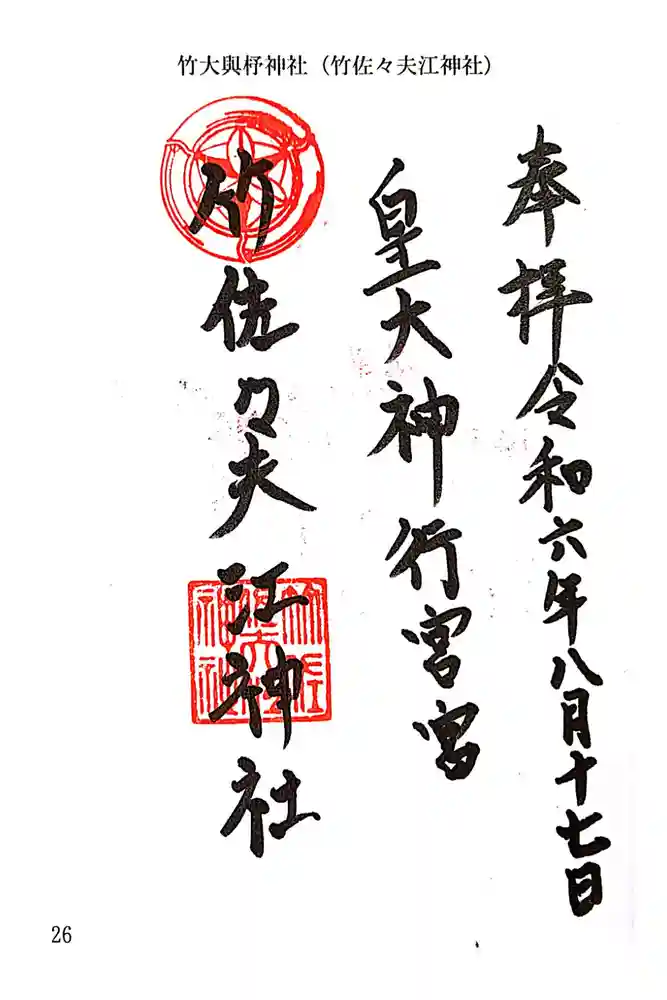 竹大與杼神社（竹佐々夫江神社）
奉拝令和六年八月十七日
皇大神行宮宮
竹佐々夫江神社
26